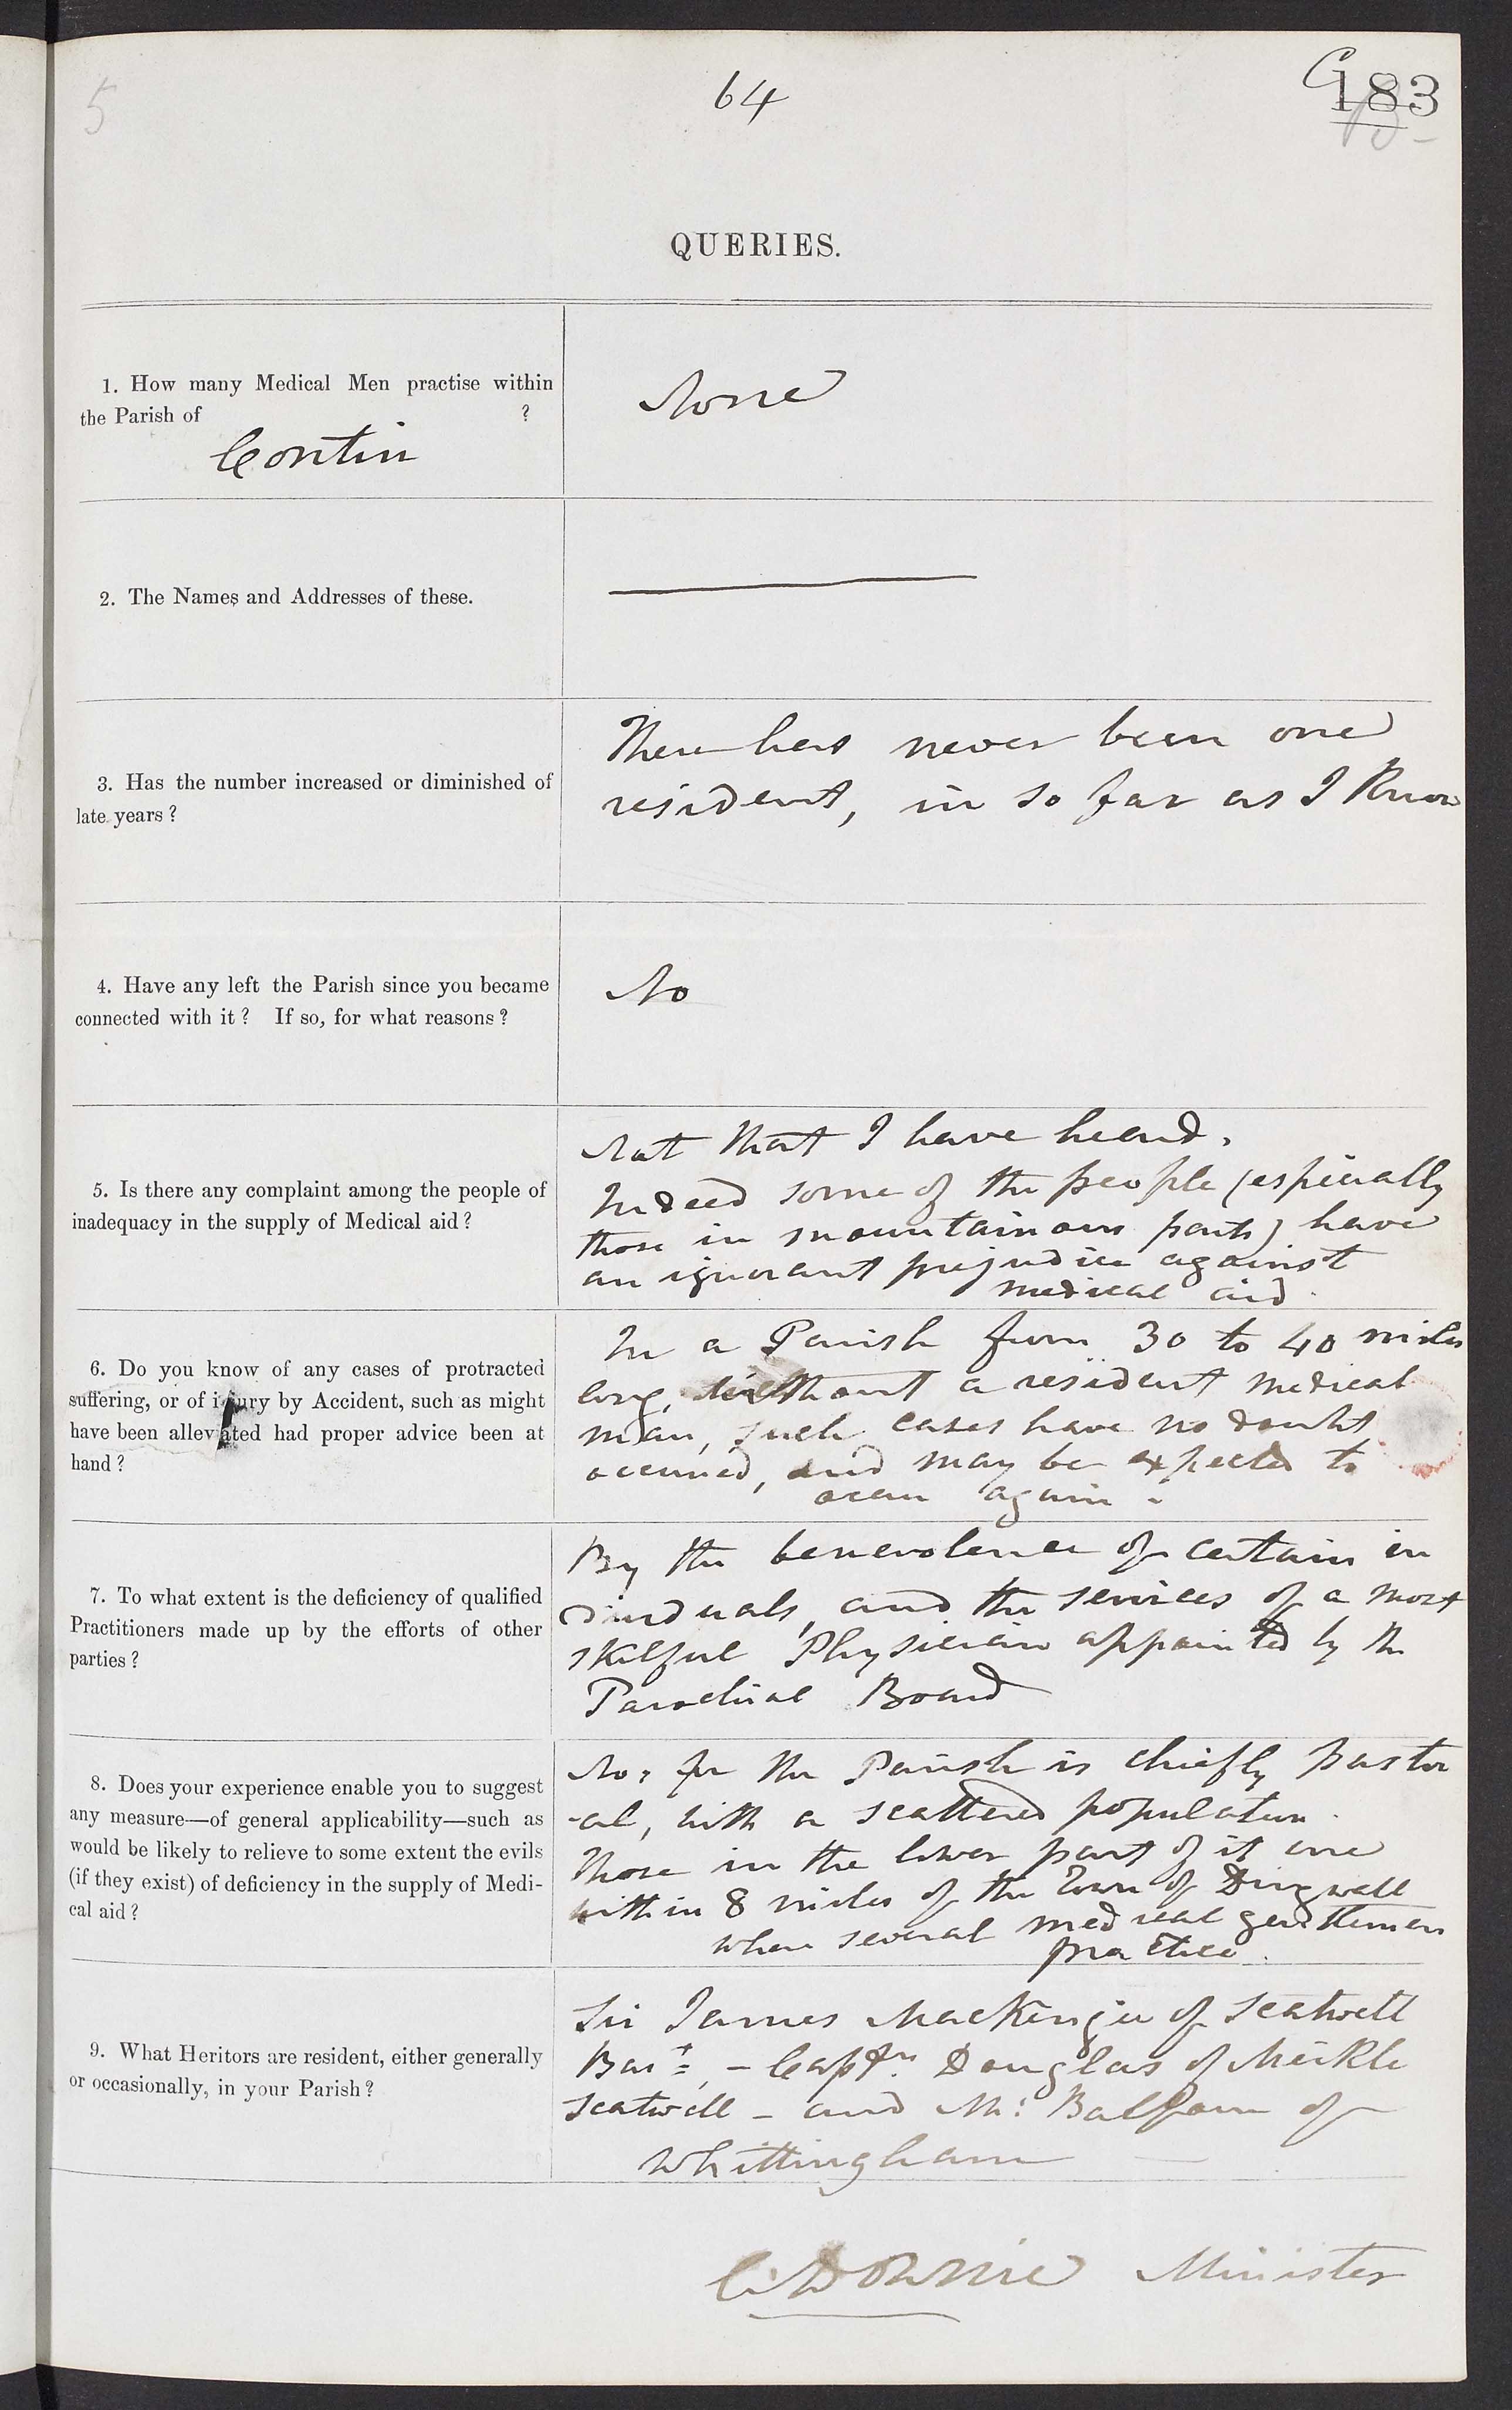 5
64
C
183
QUERIES.
1. How many Medical Men practise within
the Parish of ?
Contin
None
2. The Names and Addresses of these.
3. Has the number increased or diminished of
late years ?
There has never been one
resident, in so far as I Know
4. Have any left the Parish since you became
connected with it ? If so, for what reasons ?
No
5. Is there any complaint among the people of
inadequacy in the supply of Medical aid ?
Not that I have heard.
Indeed some of the people (especially
those in mountainous parts) have
an ignorant prejudice against
medical aid.
6. Do you know of any cases of protracted
suffering, or of injury by Accident, such as might
have been alleviated had proper advice been at
hand ?
In a Parish from 30 to 40 miles
long, without a resident medical
man, such cases have no doubt
occurred, and may be expected to
occur again.
7. To what extent is the deficiency of qualified
Practitioners made up by the efforts of other
parties ?
By the benevolence of certain in
dividuals, and the services of a most
skilful Physician appointed by the
Parochial Board
8. Does your experience enable you to suggest
any measure—of general applicability—such as
would be likely to relieve to some extent the evils
(if they exist) of deficiency in the supply of Medi-
cal aid ?
No; for the Parish is chiefly pastor
-al, with a scattered population.
Those in the lower part of it are
within 8 miles of the Town of Dingwall
where several medical gentlemen
practice.
9. What Heritors are resident, either generally
or occasionally, in your Parish ?
Sir James MacKenzie of Scatwell
Bart, – Captn. Douglas of Meikle
Scatwell – and Mr. Balfour of
Whittingham
C. Downie Minister